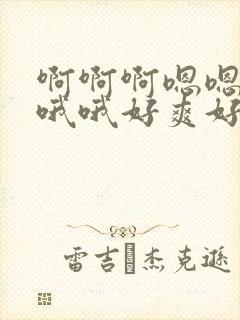 啊啊啊嗯嗯
哦哦好爽好
雷吉 杰克逊